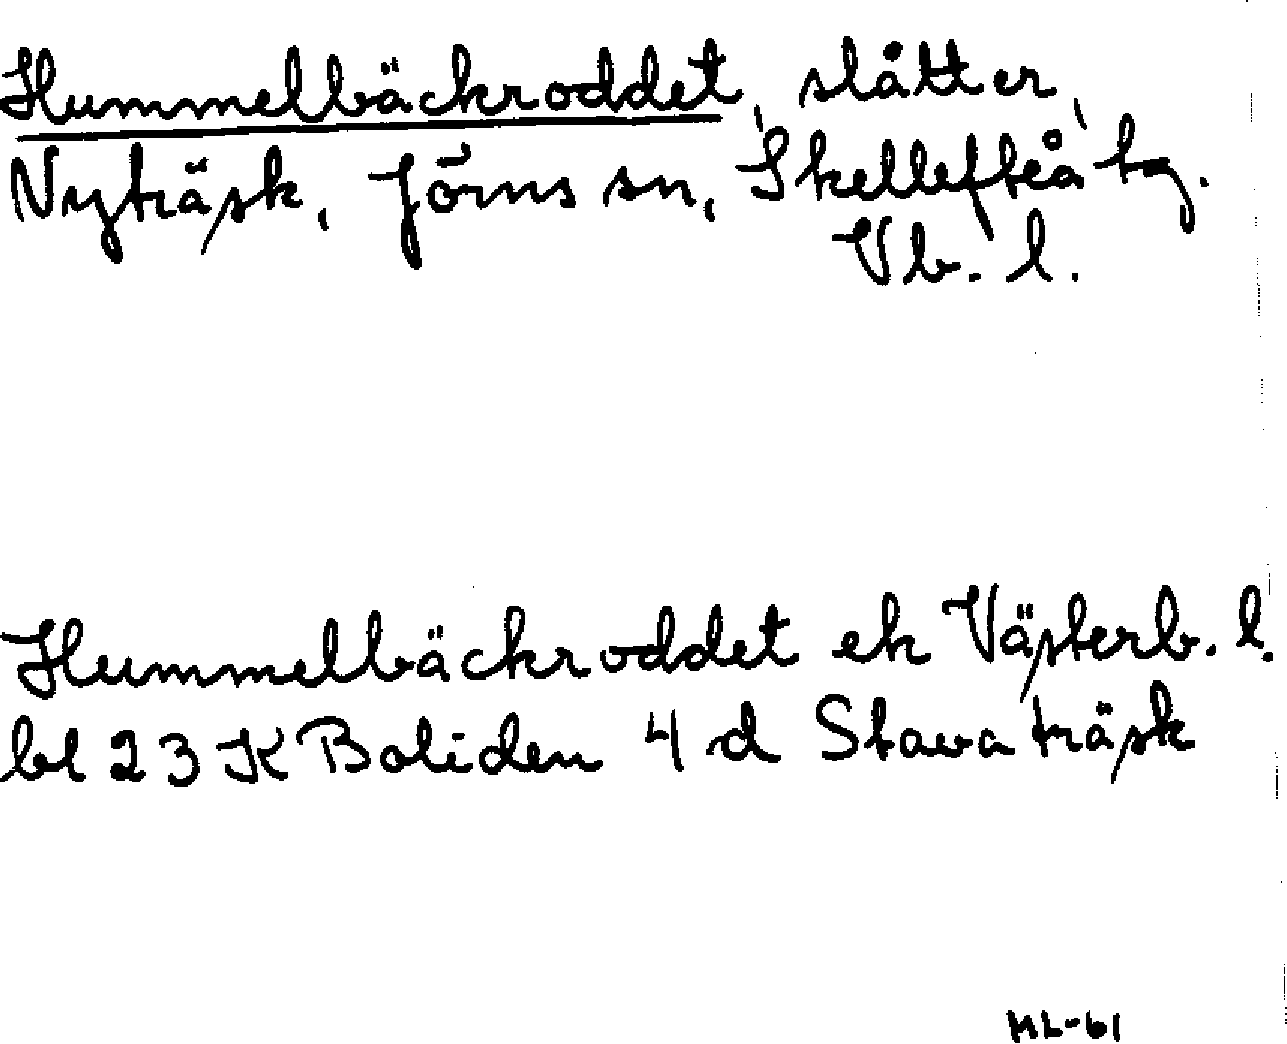 Hummelbäckroddet, slåtter,
Nyträsk, Jörns sn, Skellefteå tg.
Vb. l.
Hummelbäckroddet ek Västerb. l.
bl 23 K Boliden 4 d Stavaträsk
ML-61